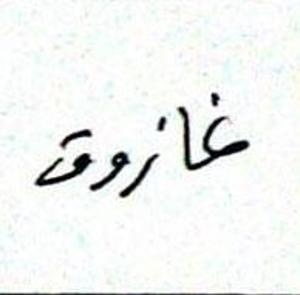 غازوق